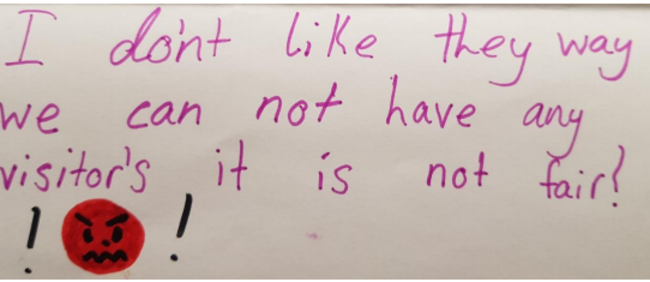 I don't like they way
we can not have any
visitor's it is not fair!
! !